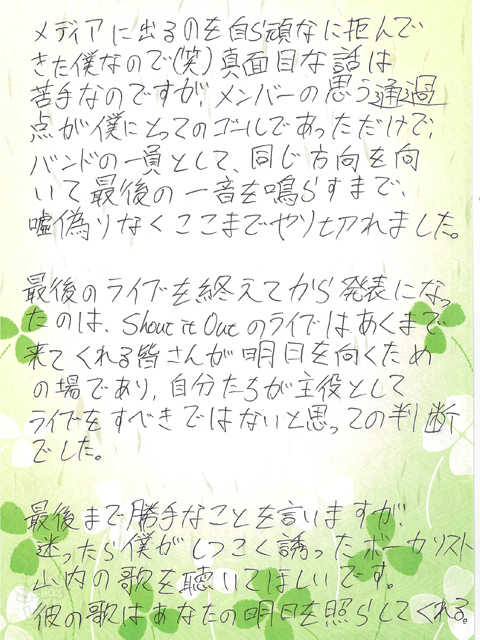 メディアに出るのを自ら頑なに拒んで
きた僕なので(笑)真面目な話は
苦手なのですが、メンバーの思う通過
点が僕にとってのゴールであっただけで、
バンドの一員として、同じ方向を向
いて最後の一音を鳴らすまで、
嘘偽りなくここまでやり切れました。
最後のライブを終えてから発表になっ
たのは、Shout it Outのライブはあくまで
来てくれる皆さんが明日を向くため
の場であり、自分たちが主役として
ライブをすべきではないと思っての判断
でした。
最後まで勝手なことを言いますが、
迷ったら僕がしつこく誘ったボーカリスト
山内の歌を聴いてほしいです。
彼の歌はあなたの明日を照らしてくれる。